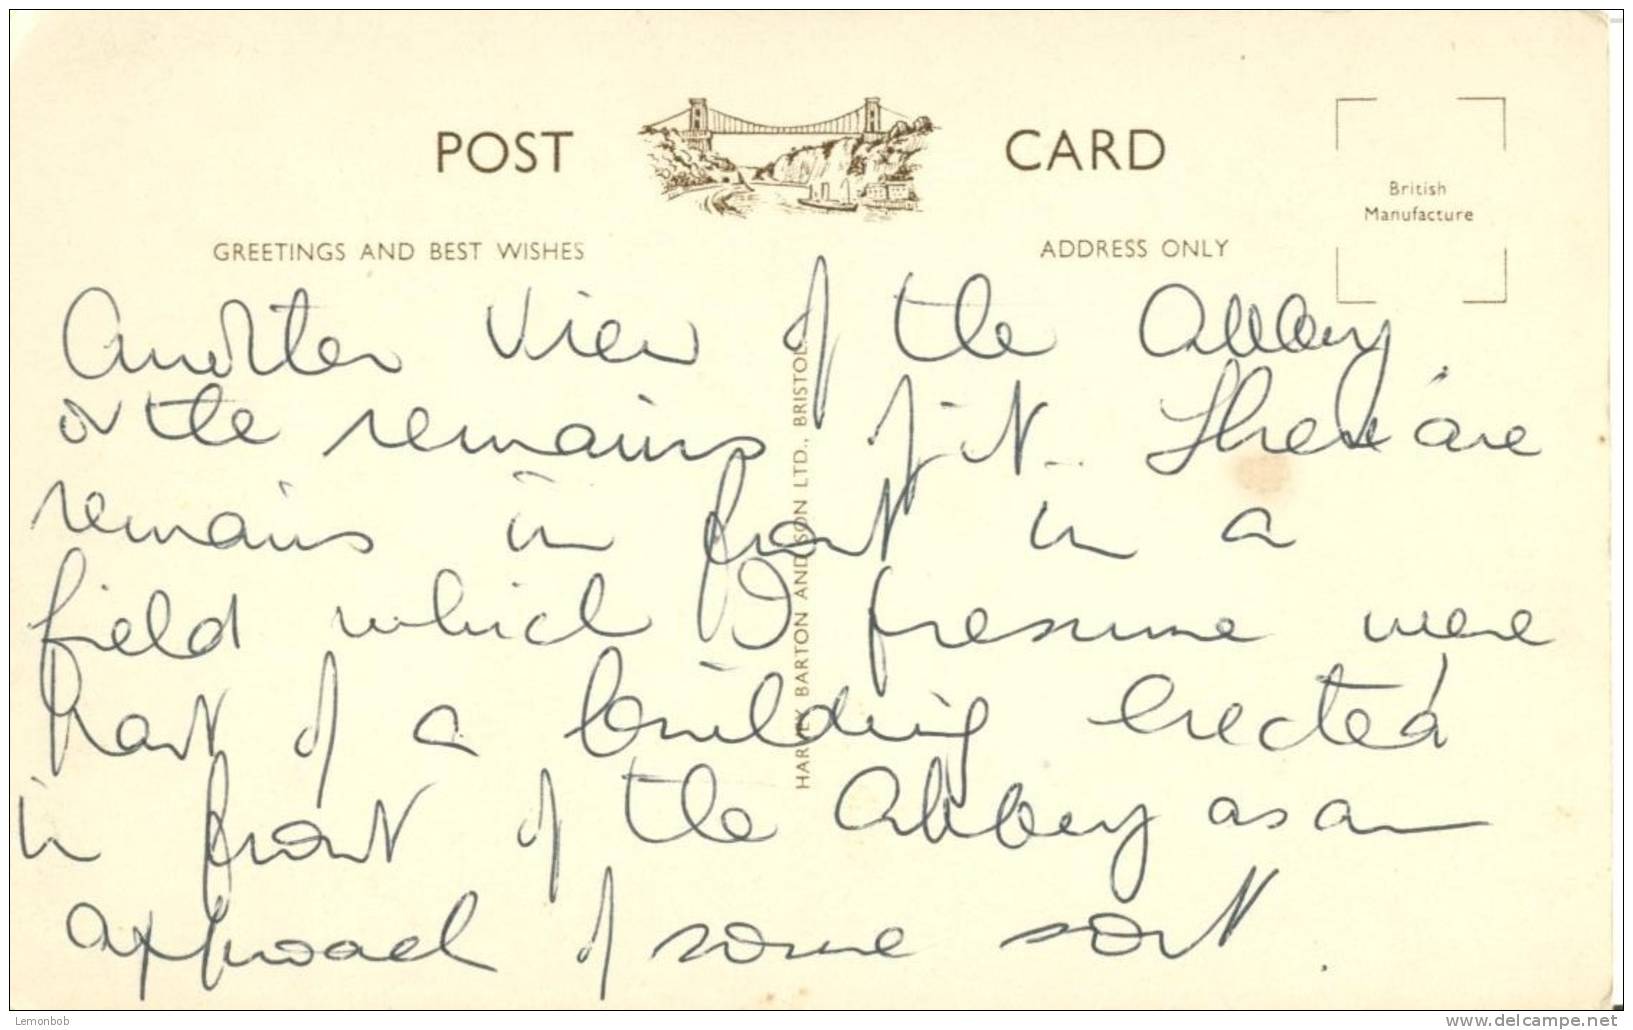 POST CARD
British
Manufacture
GREETINGS AND BEST WISHES
ADDRESS ONLY
Another view of the Abbey
or the remains of it. There are
remains in front in a
field which I presume were
part of a building erected
in front of the Abbey as an
approach of some sort.
HARVEY BARTON AND SON LTD., BRISTOL.
Lemonbob
www.delcampe.net